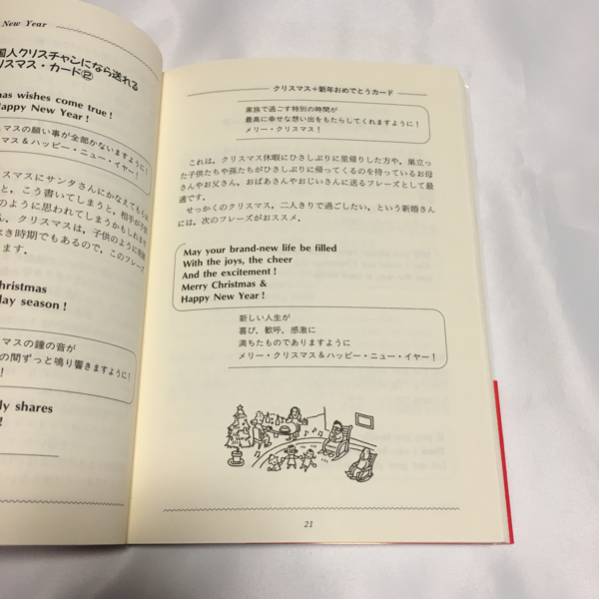 New Year
国人クリスチャンになら送れる
リスマス・カード②
as wishes come true!
Happy New Year!
スマスの願い事が全部かないますように!
マス&ハッピー・ニュー・イヤー!
スマスにサンタさんにかなえてもらい
と,こう書いてしまうと,相手が子供
のように思われてしまうかもしれませ
る。クリスマスは,子供のように無邪
べき時期でもあるので,このフレーズ
ます。
hristmas
lay season!
マスの鐘の音が
の間ずっと鳴り響きますように!
ly shares
!
クリスマス+新年おめでとうカード
家族で過ごす特別の時間が
最高に幸せな想い出をもたらしてくれますように!
メリー・クリスマス!
これは,クリスマス休暇にひさしぶりに里帰りした方や,巣立っ
た子供たちや孫たちがひさしぶりに帰ってくるのを待っているお母
さんやお父さん,おばあさんやおじいさんに送るフレーズとして最
適です。
せっかくのクリスマス,二人きりで過ごしたい,という新婚さん
には,次のフレーズがおススメ。
May your brand-new life be filled
With the joys, the cheer
And the excitement!
Merry Christmas &
Happy New Year!
新しい人生が
喜び,歓呼,感激に
満ちたものでありますように
メリー・クリスマス&ハッピー・ニュー・イヤー!
21